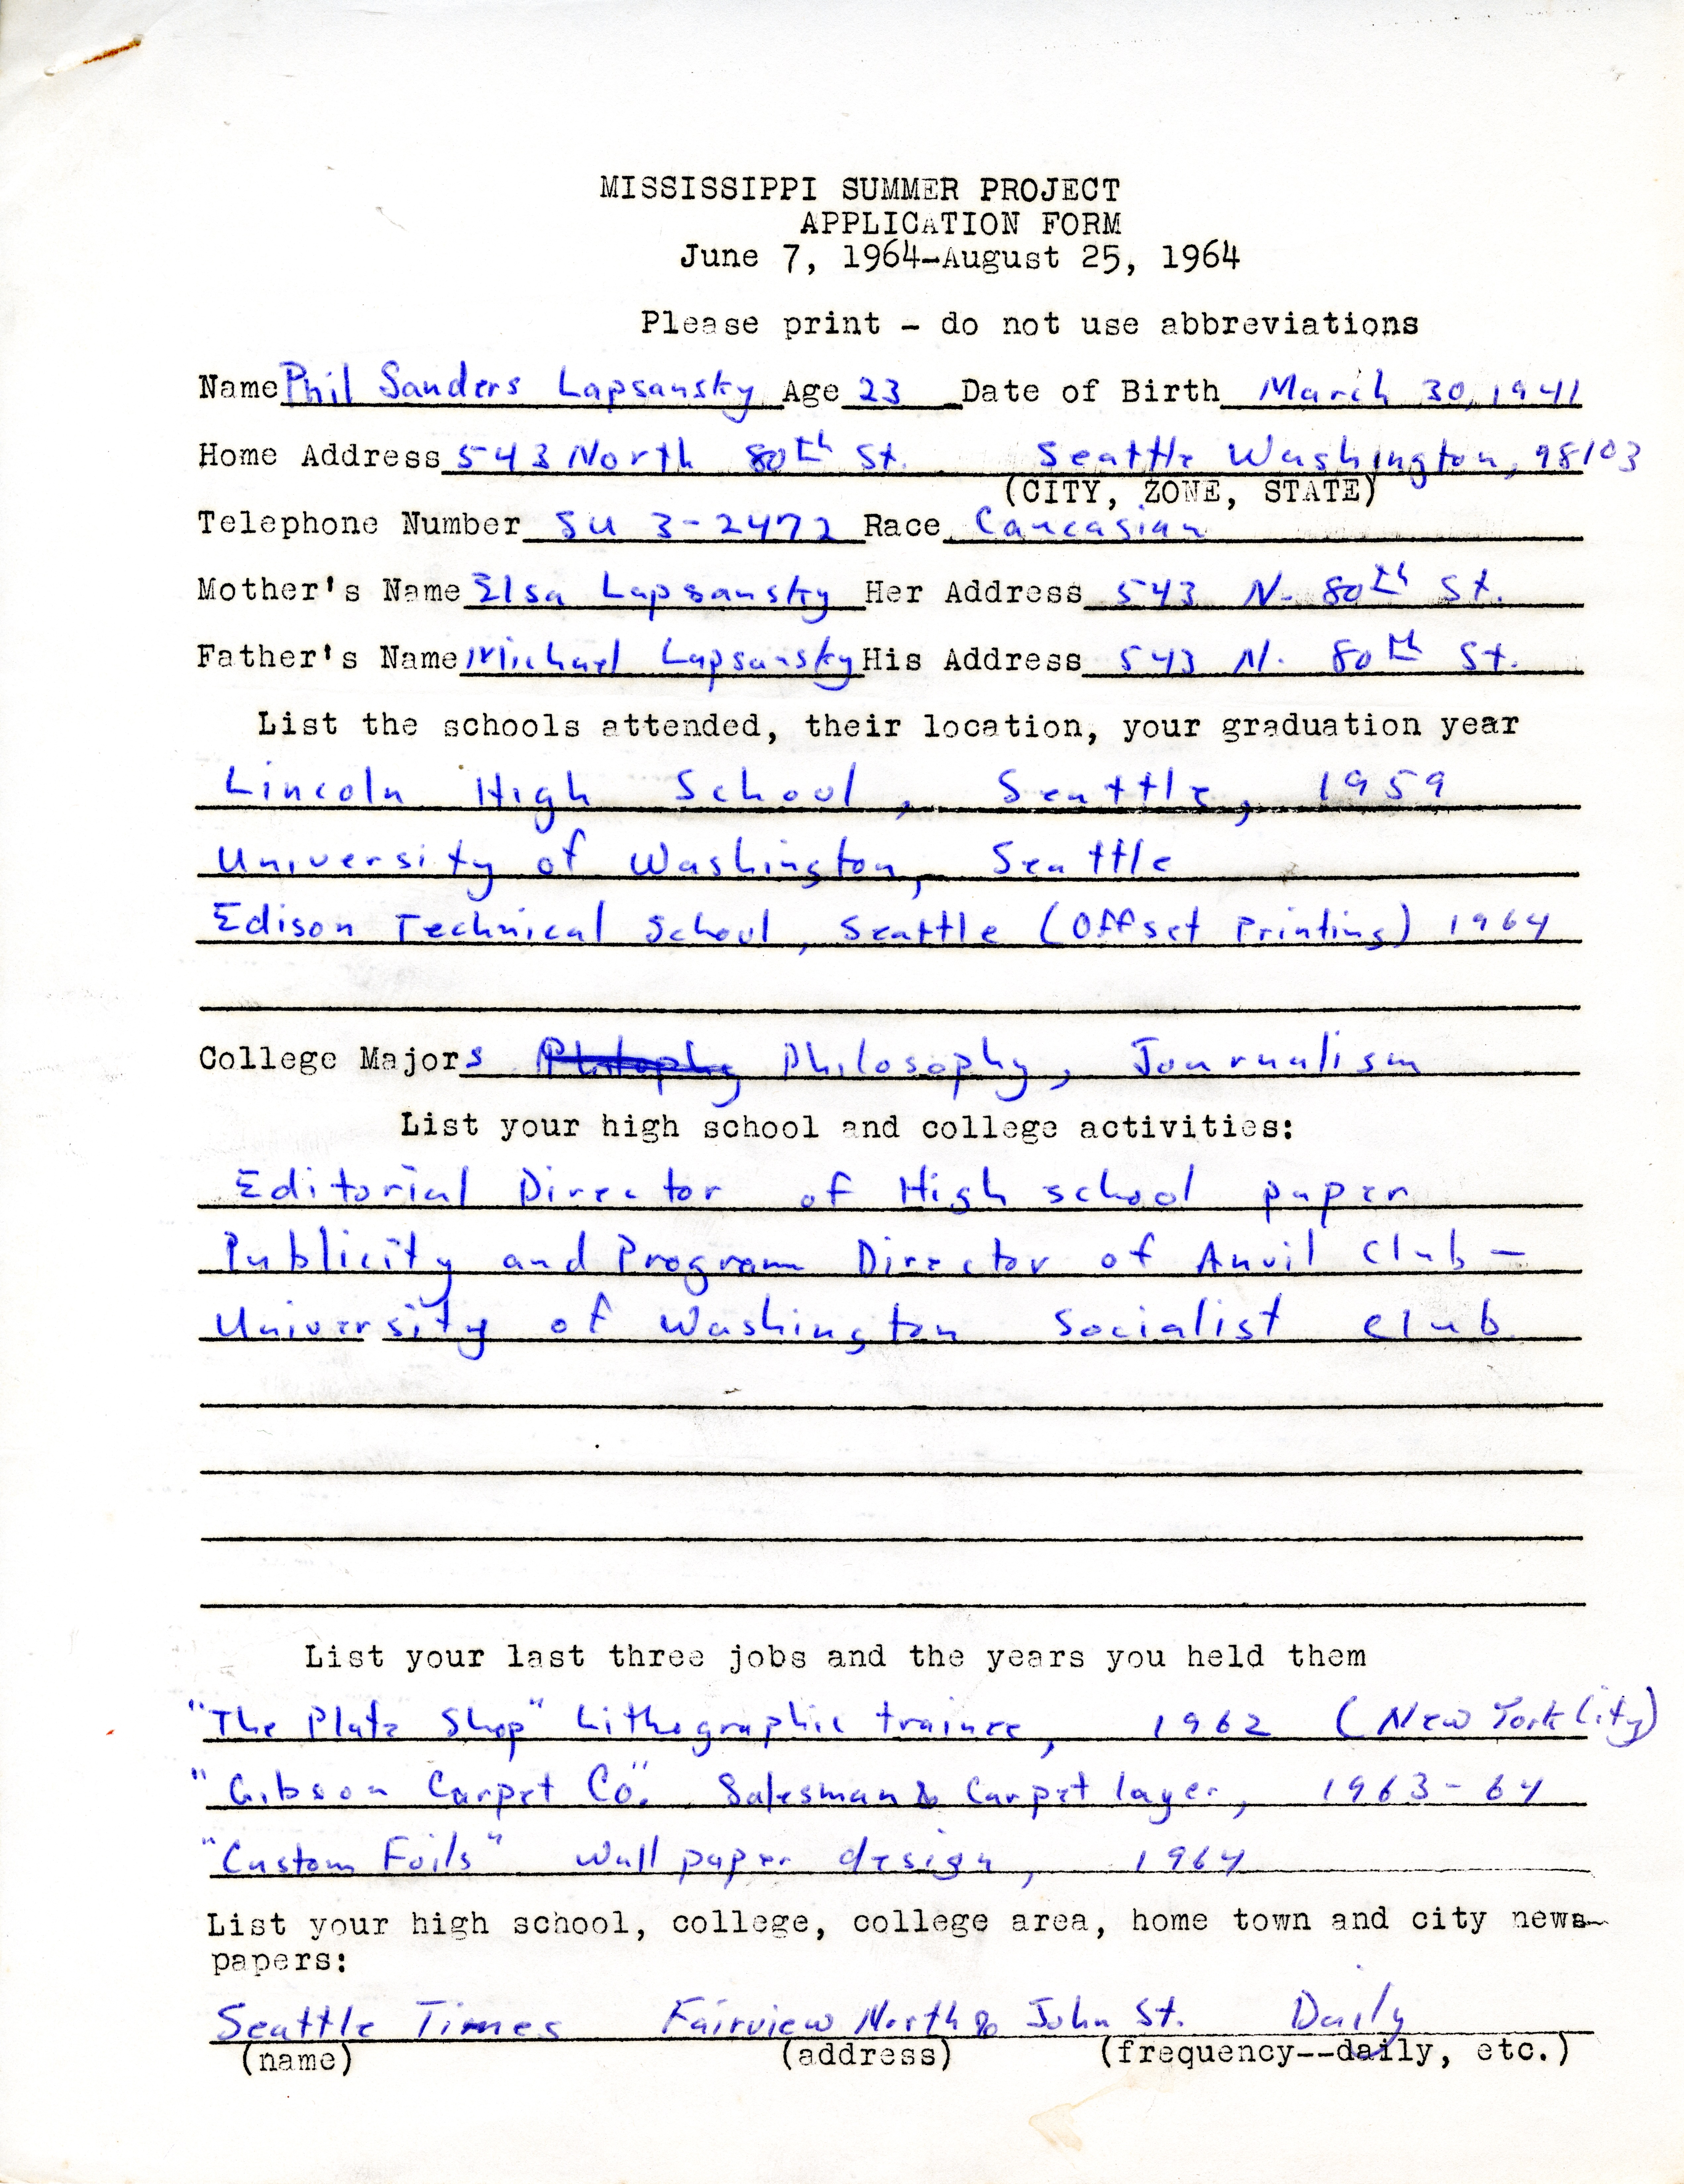 MISSISSIPPI SUMMER PROJECT
APPLICATION FORM
June 7, 1964-August 25, 1964
Please print - do not use abbreviations
Name Phil Sanders Lapsansky Age 23 Date of Birth March 30, 1941
Home Address 543 North 80th St. Seattle Washington, 98103
(CITY, ZONE, STATE)
Telephone Number SU 3-2472 Race Caucasian
Mother's Name Elsa Lapsansky Her Address 543 N. 80th St.
Father's Name Michael Lapsansky His Address 543 N. 80th St.
List the schools attended, their location, your graduation year
Lincoln High School, Seattle, 1959
University of Washington, Seattle
Edison Technical School, Seattle (Offset Printing) 1964
College Majors Philosophy, Journalism
List your high school and college activities:
Editorial Director of High school paper
Publicity and Program Director of Anvil Club -
University of Washington Socialist Club
List your last three jobs and the years you held them
"The Plate Shop" Lithographic trainee, 1962 (New York City)
"Gibson Carpet Co." Salesman & Carpet layer, 1963-64
"Custom Foils" Wall paper design, 1964
List your high school, college, college area, home town and city news-
papers:
Seattle Times Fairview North & John St. Daily
(name) (address) (frequency--daily, etc.)